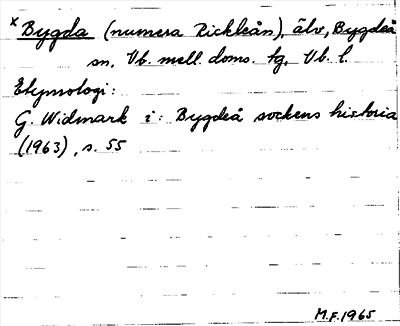 x Bygda (numera Rickleån), älv, Bygdeå
sn, Vb. mell. doms. tg, Vb. l.
Etymologi:
G. Widmark i: Bygdeå sockens historia
(1963), s. 55
M.F. 1965